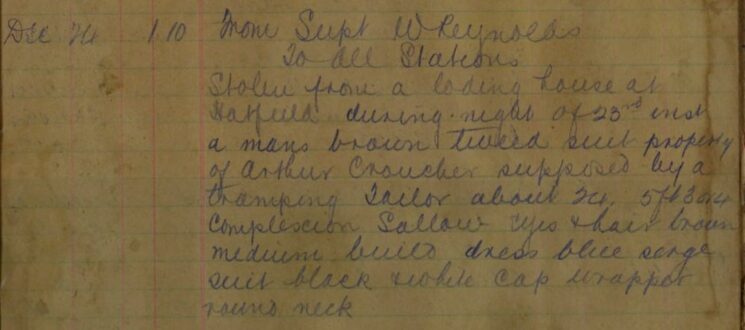 Dec 24 1.10 From Supt W Reynolds
To all Stations
Stolen from a loding house at
Hatfield during night of 23rd inst
a mans brown tweed suit property
of Arthur Croucher supposed by a
tramping Tailor about 24. 5ft 3 or 4
Complexion Sallow eyes & hair brown
medium build dress blue serge
suit black & white cap wrapper
round neck